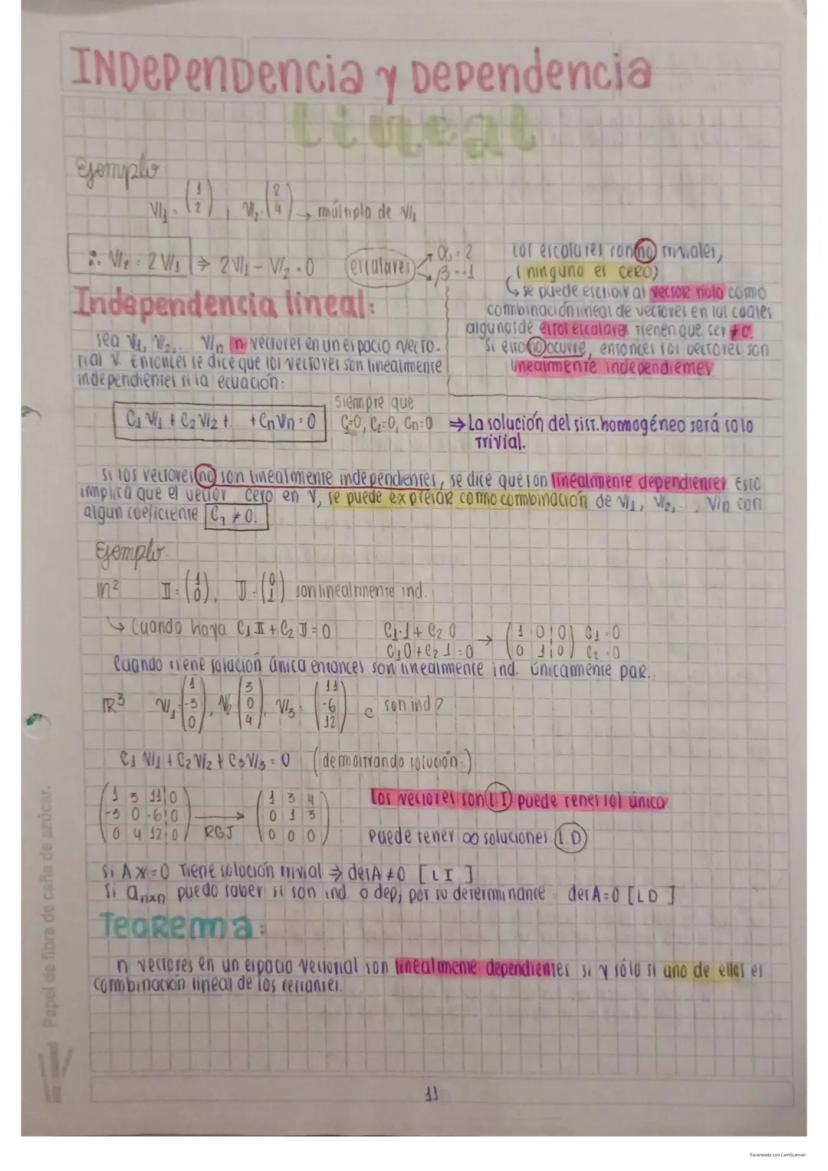 INDEPENDENCIA Y DEPENDENCIA
Lineal
Ejemplo
V₁ = (1 2), V₂ = (2 4) → múltiplo de V₁
∴ V₂ = 2V₁ ⇒ 2V₁ - V₂ = 0 escalares α = 2 β = -1
Los escalares son no triviales,
(ninguno es cero)
↳ se puede escribir al vector nulo como
combinación lineal de vectores en los cuales
algunos de estos escalares tienen que ser ≠ 0.
Si esto no ocurre, entonces los vectores son
linealmente independientes
Independencia lineal:
Sea V₁, V₂, ... Vn n vectores en un espacio vecto-
rial V. Entonces se dice que los vectores son linealmente
independientes si la ecuación:
C₁V₁ + C₂V₂ + ... + CnVn = 0
Siempre que
C₁=0, C₂=0, Cn=0 ⇒ La solución del sist. homogéneo será solo
trivial.
Si los vectores no son linealmente independientes, se dice que son linealmente dependientes Esto
implica que el vector cero en V, se puede expresar como combinación de V₁, V₂, ... Vn con
algun coeficiente C₁ ≠ 0.
Ejemplo.
II = (1 0), J = (0 1) son linealmente ind.
↳ Cuando haya C₁ II + C₂ J = 0
C₁·1 + C₂ 0 → (1 0 | 0) C₁ = 0
C₁0 + C₂1 = 0 (0 1 | 0) C₂ = 0
Cuando tiene solución única entonces son linealmente ind. únicamente par.
R³ V₁ = (1 -3 0), V₂ (3 0 4), V₃ = (11 -6 12) ¿ son ind?
C₁V₁ + C₂V₂ + C₃V₃ = 0 (demostrando solución.)
1 3 11 | 0
-3 0 -6 | 0
0 4 12 | 0
→ RGJ
1 3 4
0 1 3
0 0 0
Los vectores son L.I puede tener sol único
Puede tener ∞ soluciones L.D
Si Ax=0 Tiene solución trivial ⇒ det A ≠ 0 [LI]
Si anxn puedo saber si son ind o dep, por su determinante det A = 0 [LD]
Teorema:
n vectores en un espacio vectorial son linealmente dependientes si y sólo si uno de ellos es
combinación lineal de los restantes.
11
Papel de fibra de caña de azúcar.
Escaneado con CamScanner